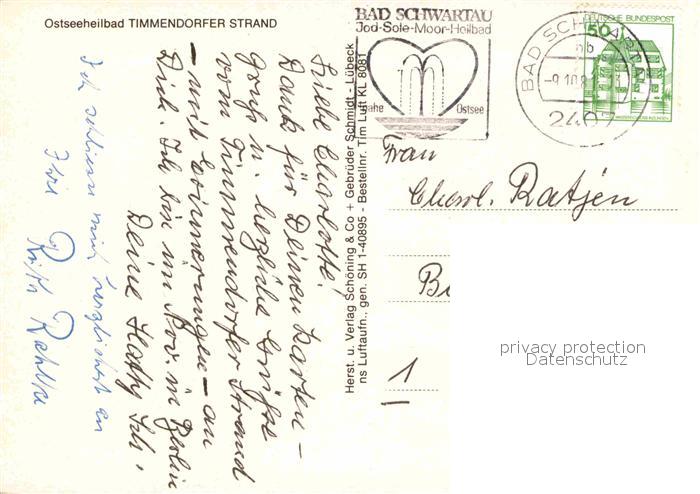 Ostseeheilbad TIMMENDORFER STRAND
Liebe Charlotte!
Dank für Deinen Karten-
gruß u. herzliche Grüße
vom Timmendorfer Strand
- mit Erinnerungen - an
Dich. Ich bin im Nov. in Berlin
Deine
Ich schliesse mich herzlichst an
Ihre
Ruth
Herst. u. Verlag Schöning & Co + Gebrüder Schmidt - Lübeck
ns Luftaufn., gen. SH 1-40895 - Bestellnr. Tim Luft KL 8081
BAD SCHWARTAU
Jod-Sole-Moor-Heilbad
nahe Ostsee
BAD SCHWARTAU
hb
-9.10.8
2407
DEUTSCHE BUNDESPOST
50
Frau
Charl. Ratjen
B
1
privacy protection
Datenschutz